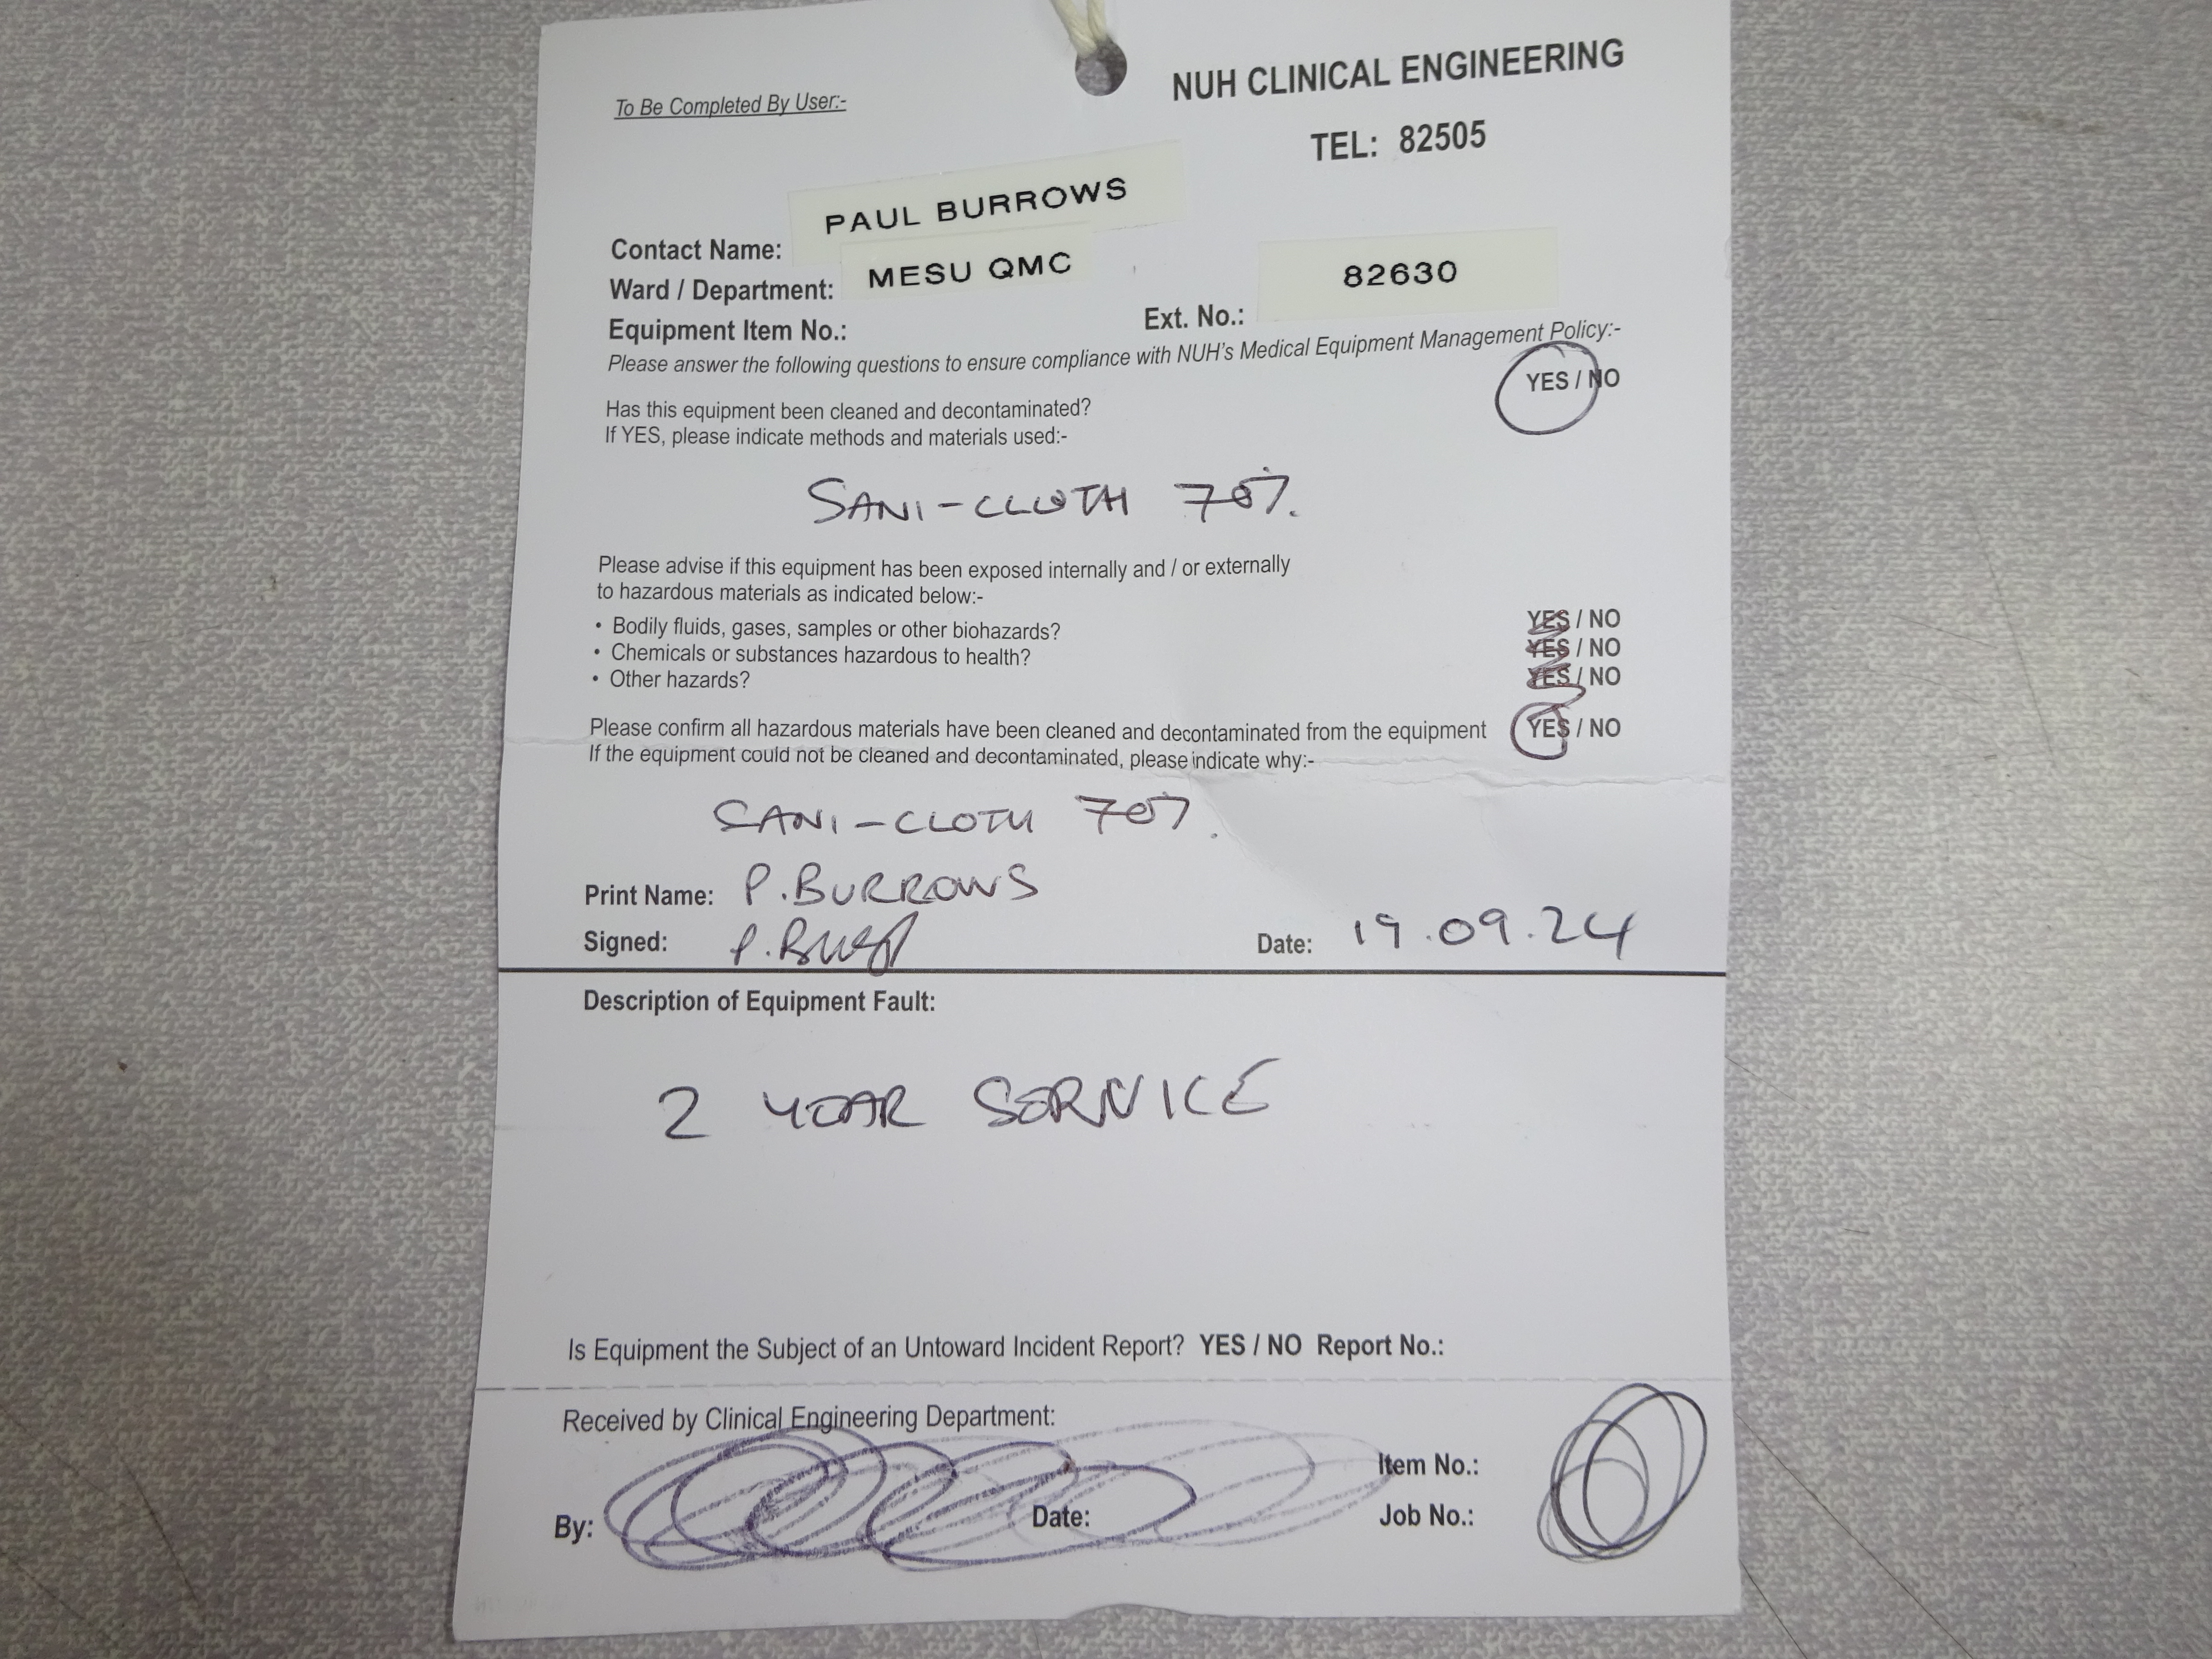 To Be Completed By User:-
NUH CLINICAL ENGINEERING
TEL: 82505
Contact Name: PAUL BURROWS
Ward / Department: MESU QMC
Equipment Item No.:
Ext. No.: 82630
Please answer the following questions to ensure compliance with NUH's Medical Equipment Management Policy:-
Has this equipment been cleaned and decontaminated? YES / NO
If YES, please indicate methods and materials used:-
SANI-CLOTH 70%.
Please advise if this equipment has been exposed internally and / or externally
to hazardous materials as indicated below:-
• Bodily fluids, gases, samples or other biohazards? YES / NO
• Chemicals or substances hazardous to health? YES / NO
• Other hazards? YES / NO
Please confirm all hazardous materials have been cleaned and decontaminated from the equipment YES / NO
If the equipment could not be cleaned and decontaminated, please indicate why:-
SANI-CLOTH 70%.
Print Name: P. BURROWS
Signed: Date: 19.09.24
Description of Equipment Fault:
2 YEAR SERVICE
Is Equipment the Subject of an Untoward Incident Report? YES / NO Report No.:
Received by Clinical Engineering Department:
Item No.:
By: Date: Job No.: